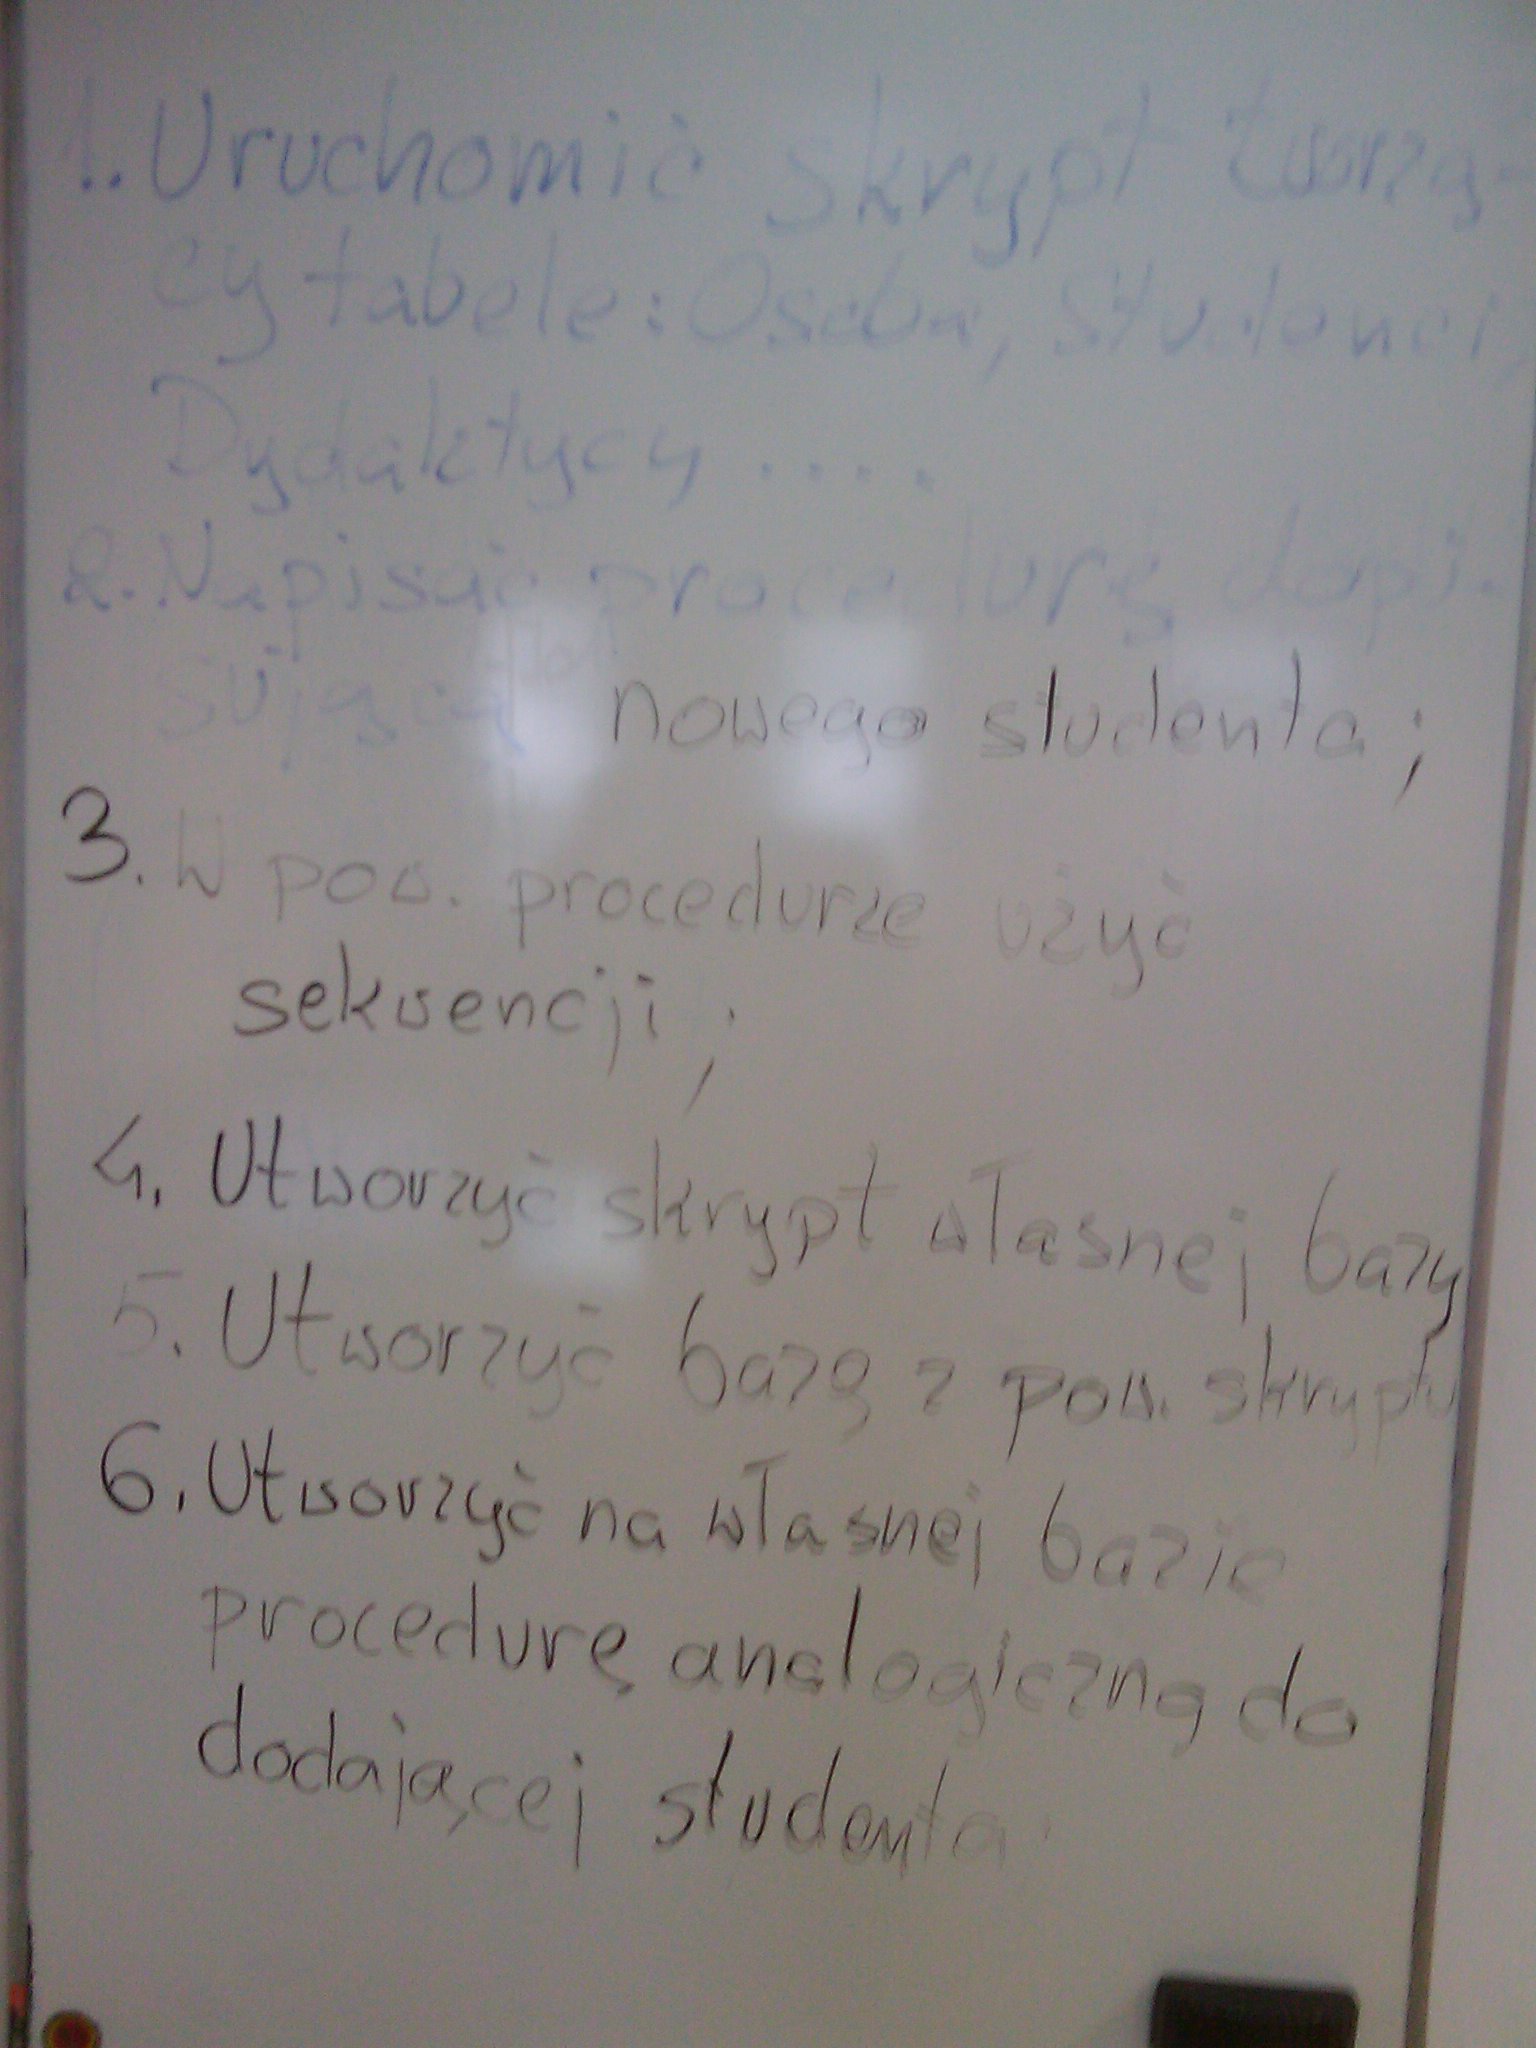 1. Uruchomić skrypt tworzą-
cy tabele: Osoba, Studenci,
Dydaktycy ....
2. Napisać procedurę dopi-
sującą nowego studenta;
3. W pow. procedurze użyć
sekwencji;
4. Utworzyć skrypt własnej bazy
5. Utworzyć bazę z pow. skryptu
6. Utworzyć na własnej bazie
procedurę analogiczną do
dodającej studenta.